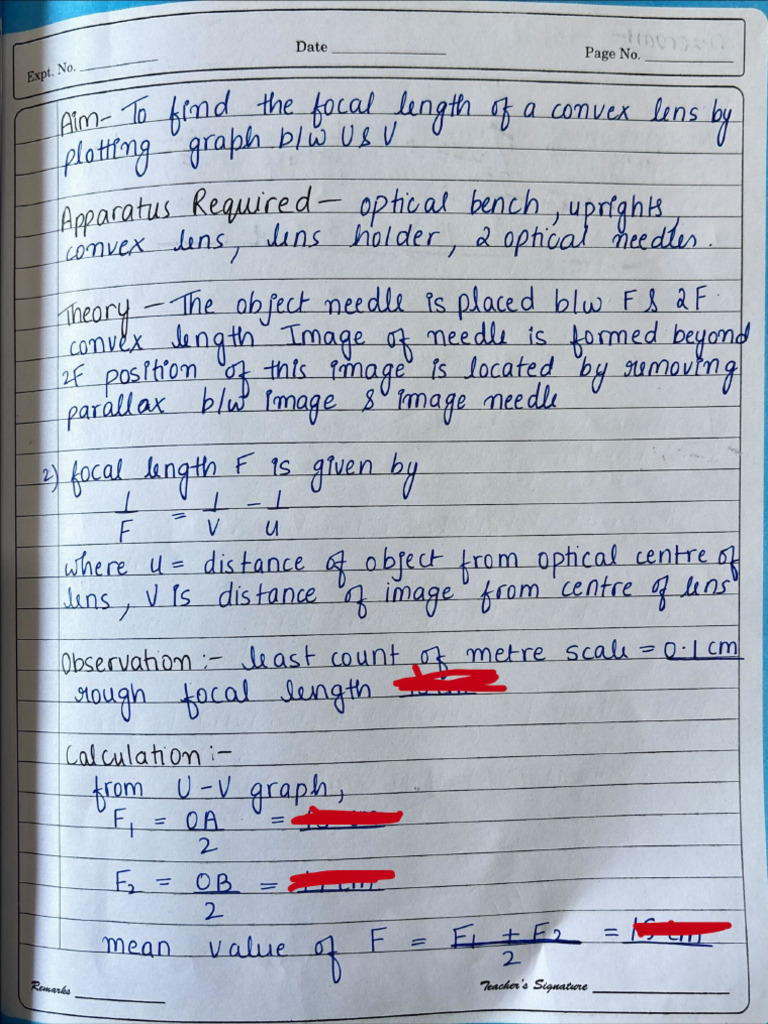 Expt. No.
Date
Page No.
Aim- To find the focal length of a convex lens by
plotting graph b/w U & V
Apparatus Required - optical bench, uprights,
convex lens, lens holder, 2 optical needles.
Theory - The object needle is placed b/w F & 2F.
convex length Image of needle is formed beyond
2F position of this image is located by removing
parallax b/w image & image needle
2) focal length F is given by
1/F = 1/V - 1/u
where u = distance of object from optical centre of
lens, V is distance of image from centre of lens
Observation :- least count of metre scale = 0.1 cm
rough focal length
Calculation :-
from U-V graph,
F₁ = OA/2 =
F₂ = OB/2 =
mean value of F = F₁ + F₂/2 =
Remarks
Teacher's Signature